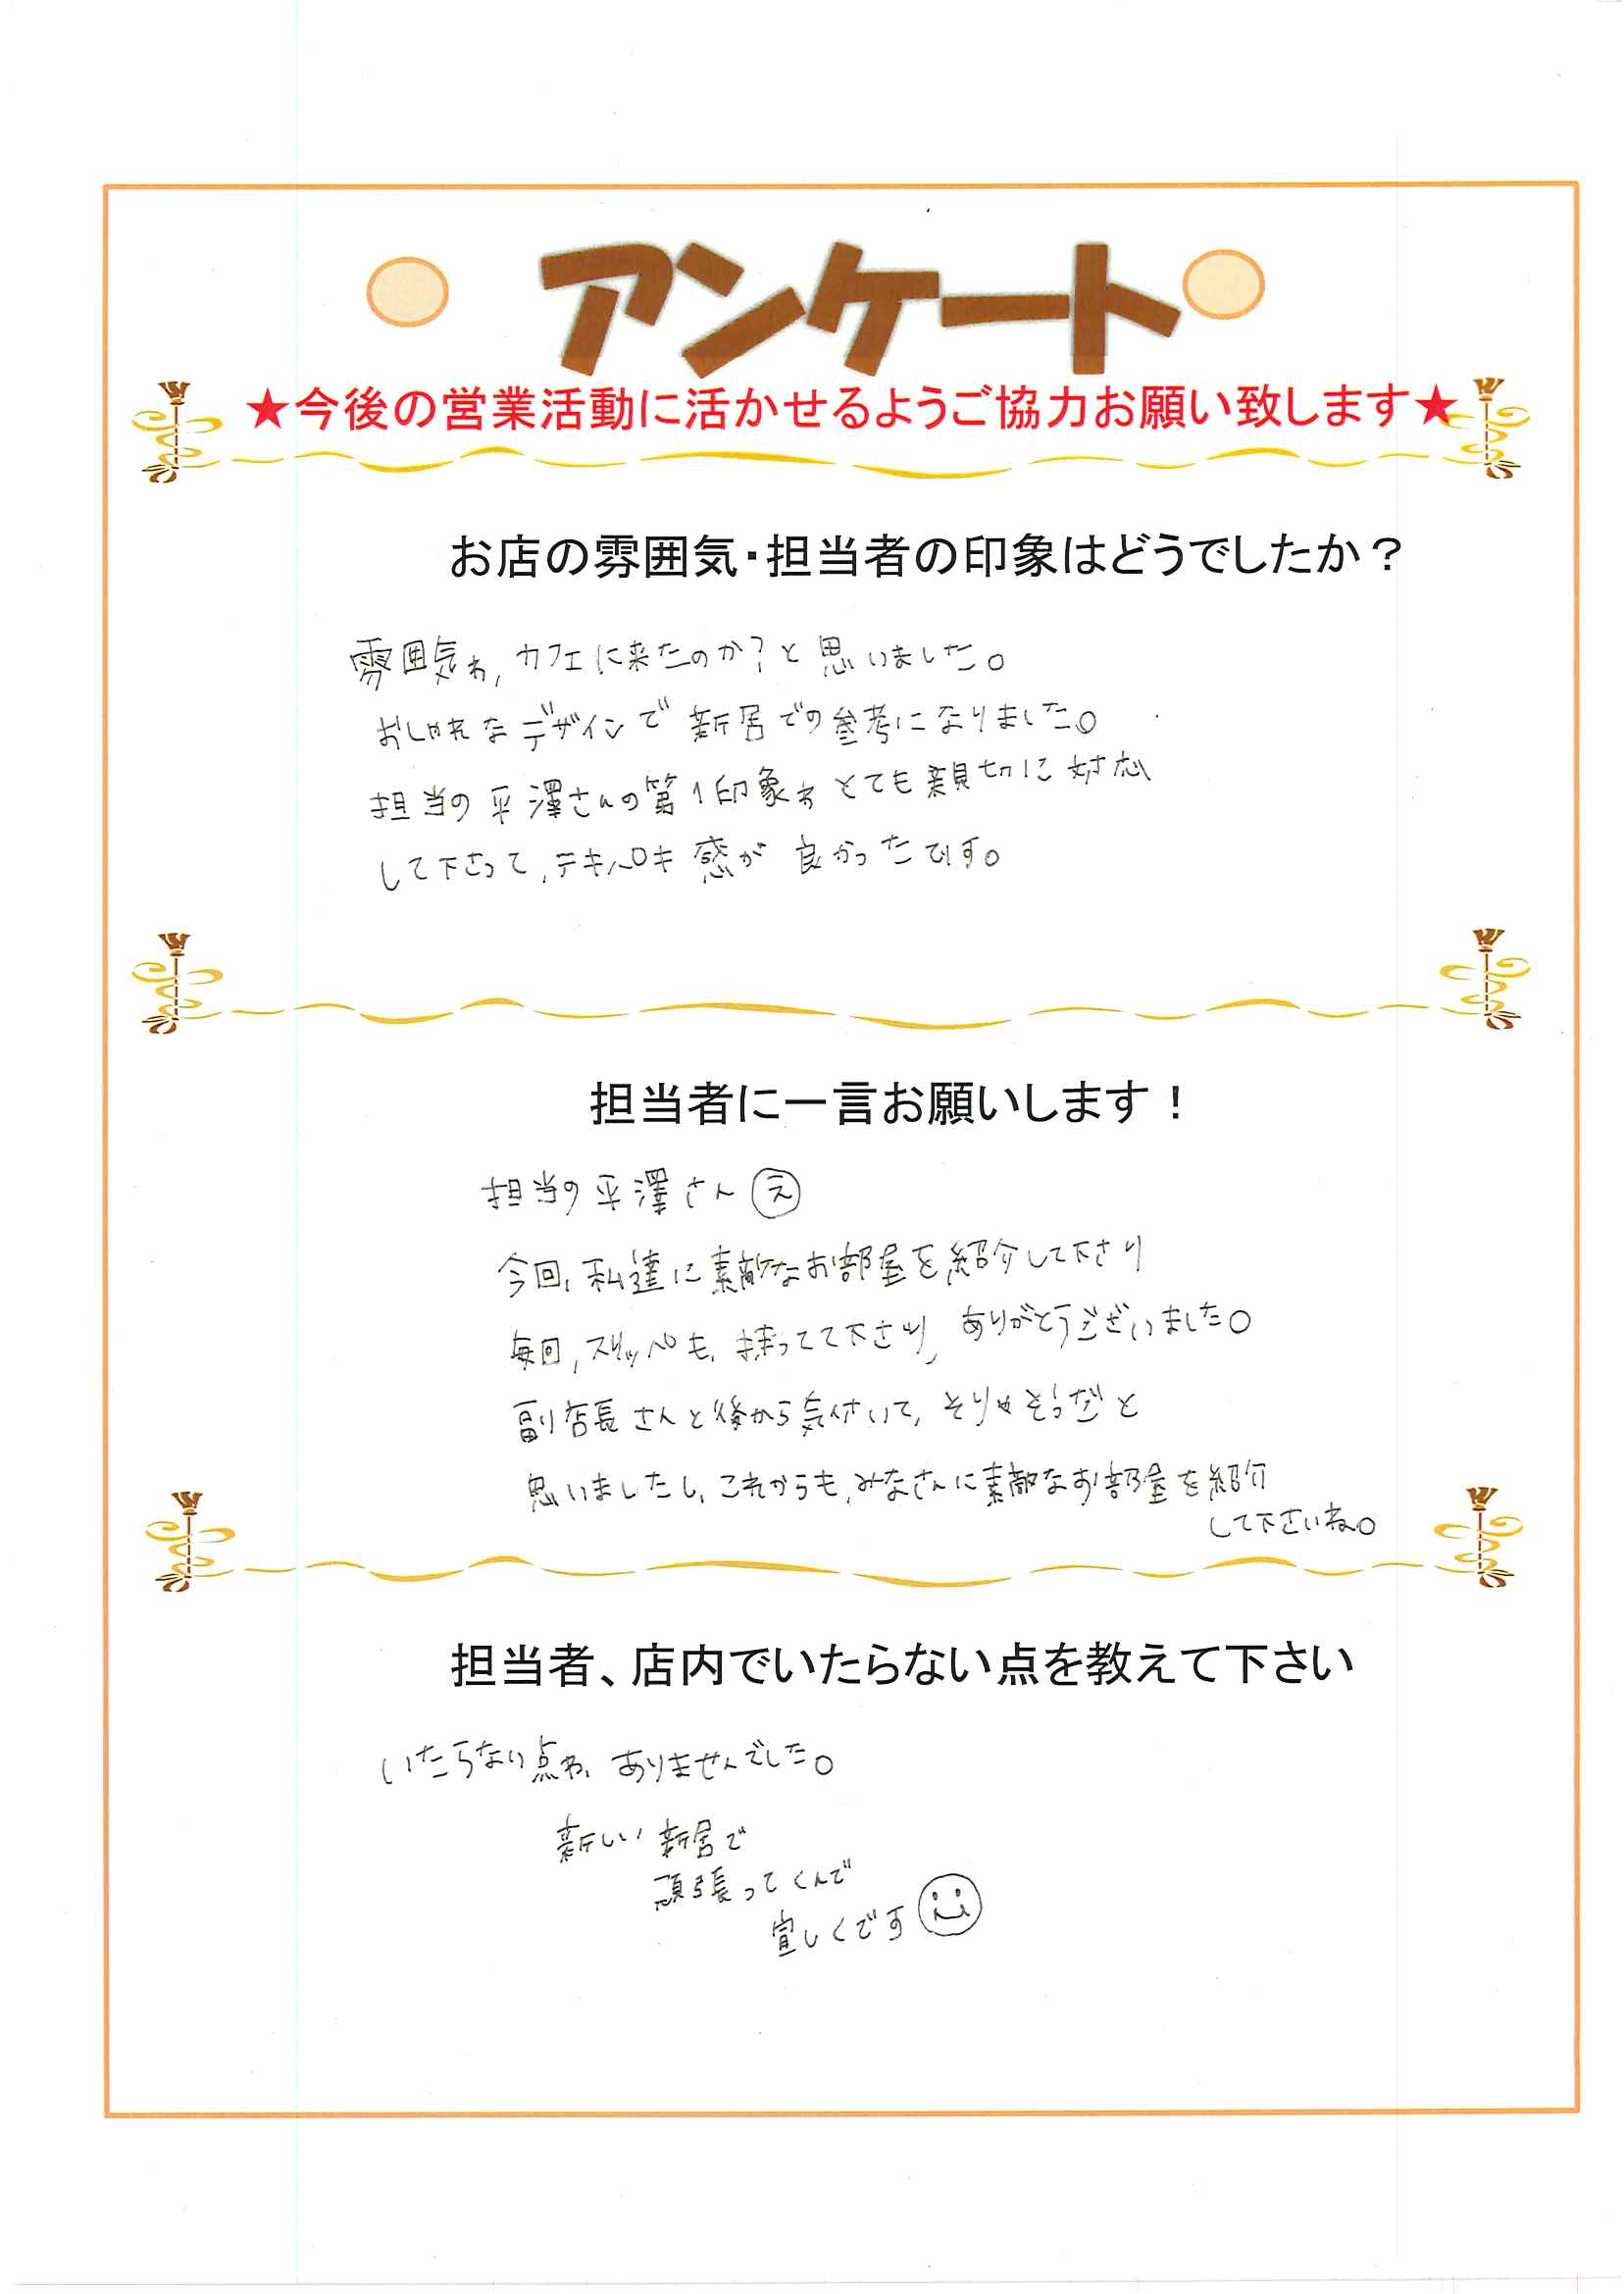 アンケート
★今後の営業活動に活かせるようご協力お願い致します★
お店の雰囲気・担当者の印象はどうでしたか？
雰囲気わ,カフェに来たのか?と思いました。
おしゃれなデザインで新居での参考になりました。
担当の平澤さんの第1印象わとても親切に対応
して下さって,テキパキ感が良かったです。
担当者に一言お願いします！
担当の平澤さん
今回,私達に素敵なお部屋を紹介して下さり
毎回,スリッパも,持ってて下さり,ありがとうございました。
副店長さんと後から気付いて,そりゃそうだと
思いましたし,これからも,みなさんに素敵なお部屋を紹介
して下さいね。
担当者、店内でいたらない点を教えて下さい
いたらない点わ,ありませんでした。
新しい新居で
頑張ってくんで
宜しくです